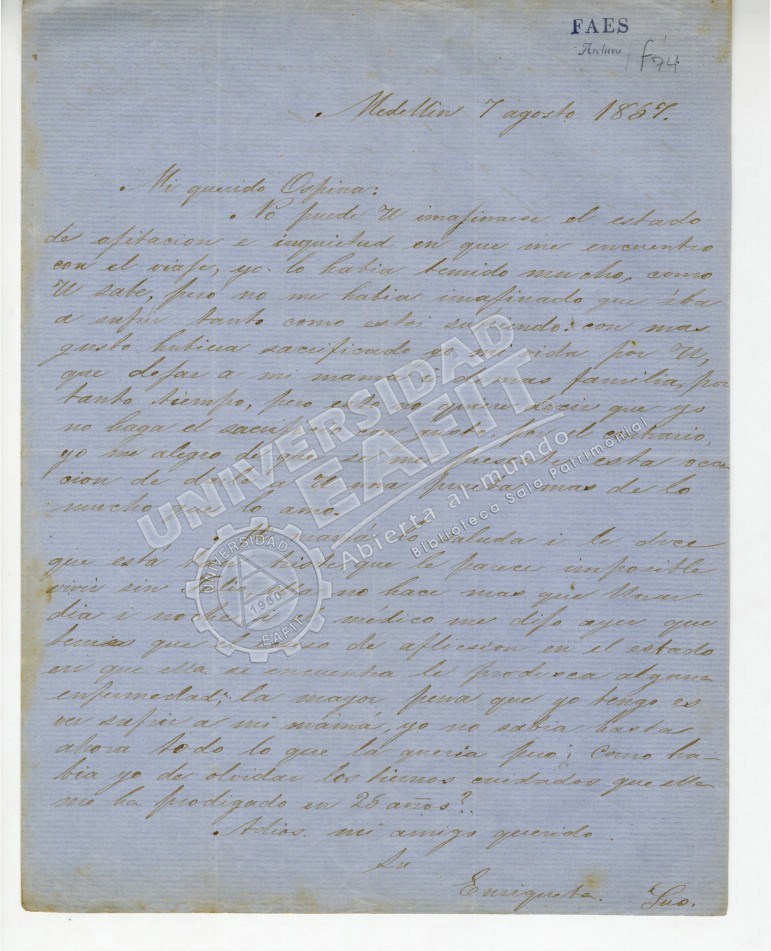 FAES
Archivo
f 74
Medellin 7 agosto 1867.
Mi querido Ospina:
No puede U imajinarse el estado
de ajitacion e inquietud en que me encuentro
con el viaje, yo lo habia temido mucho, como
U sabe, pero no me habia imajinado que iba
a sufrir tanto como estoi sufriendo: con mas
gusto hubiera sacrificado yo mi vida por U,
que dejar a mi mamá i demas familia, por
tanto tiempo, pero esto no quiere decir que yo
no haga el sacrificio con gusto, por el contrario,
yo me alegro de que se me presente esta oca
cion de darle a U una prueba mas de lo
mucho que lo amo.
Mi mamá lo saluda i le dice
que está triste que le parece imposible
vivir sin no hace mas que llorar
dia i noche i el médico me dijo ayer que
temia que el de aflicsion en el estado
en que ella se encuentra le produsca alguna
enfermedad; la mayor pena que yo tengo es
ver sufrir a mi mamá, yo no sabia hasta
ahora todo lo que la queria pero ¿ como ha-
bia yo de olvidar los tiernos cuidados que ella
me ha prodigado en 26 años?.
Adios. mi amigo querido
Su
Enriqueta.
UNIVERSIDAD
EAFIT
Abierta al mundo
Biblioteca Sala Patrimonial
UNIVERSIDAD
1960
EAFIT